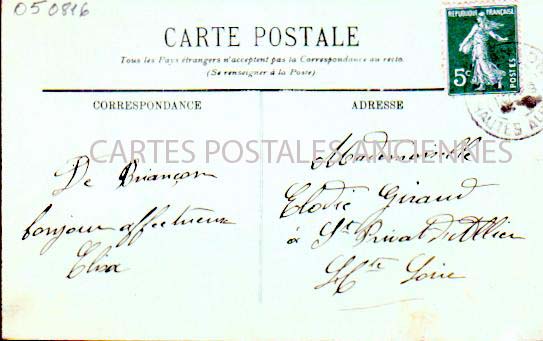 050816
CARTE POSTALE
Tous les Pays étrangers n'acceptent pas la Correspondance au recto.
(Se renseigner à la Poste)
REPUBLIQUE FRANÇAISE
5c
POSTES
HAUTES AL
CORRESPONDANCE
ADRESSE
CARTES POSTALES ANCIENNES
De Briançon
bonjour affectueux
Elisa
Mademoiselle
Elodie Giraud
à St Privat d'Allier
Hte Loire